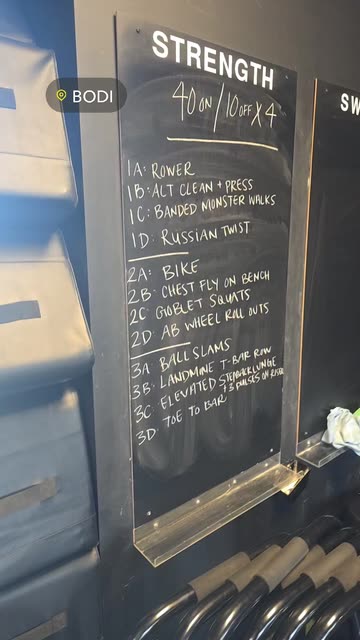 BODI
STRENGTH
40 ON / 10 OFF X 4
1A: ROWER
1B: ALT CLEAN + PRESS
1C: BANDED MONSTER WALKS
1D: RUSSIAN TWIST
2A: BIKE
2B: CHEST FLY ON BENCH
2C: GOBLET SQUATS
2D: AB WHEEL ROLL OUTS
3A BALL SLAMS
3B: LANDMINE T-BAR ROW
3C: ELEVATED STEPBACK LUNGE
+3 PULSES ON RISER
3D TOE TO BAR
SW